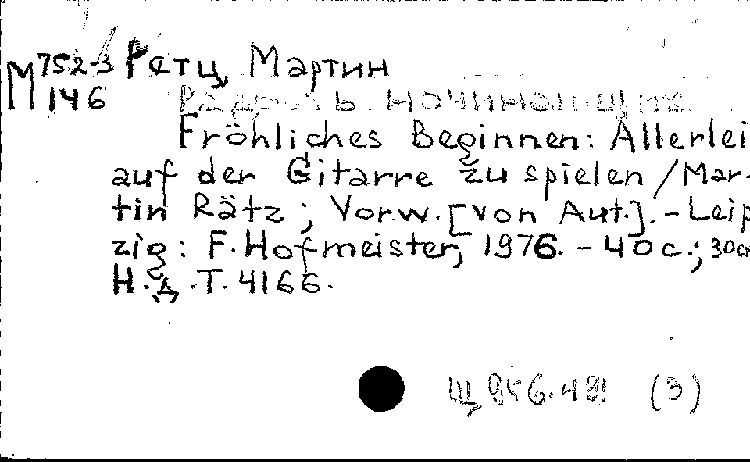 М 752-3 Ретц, Мартин
146 Радость начинающих
Fröhliches Beginnen: Allerlei
auf der Gitarre zu spielen /Mar-
tin Rätz; Vorw. [von Aut.]. - Leip
zig: F. Hofmeister, 1976. - 40 с.; 30с
Н.д.Т. 4166.
Щ 956.48 (3)